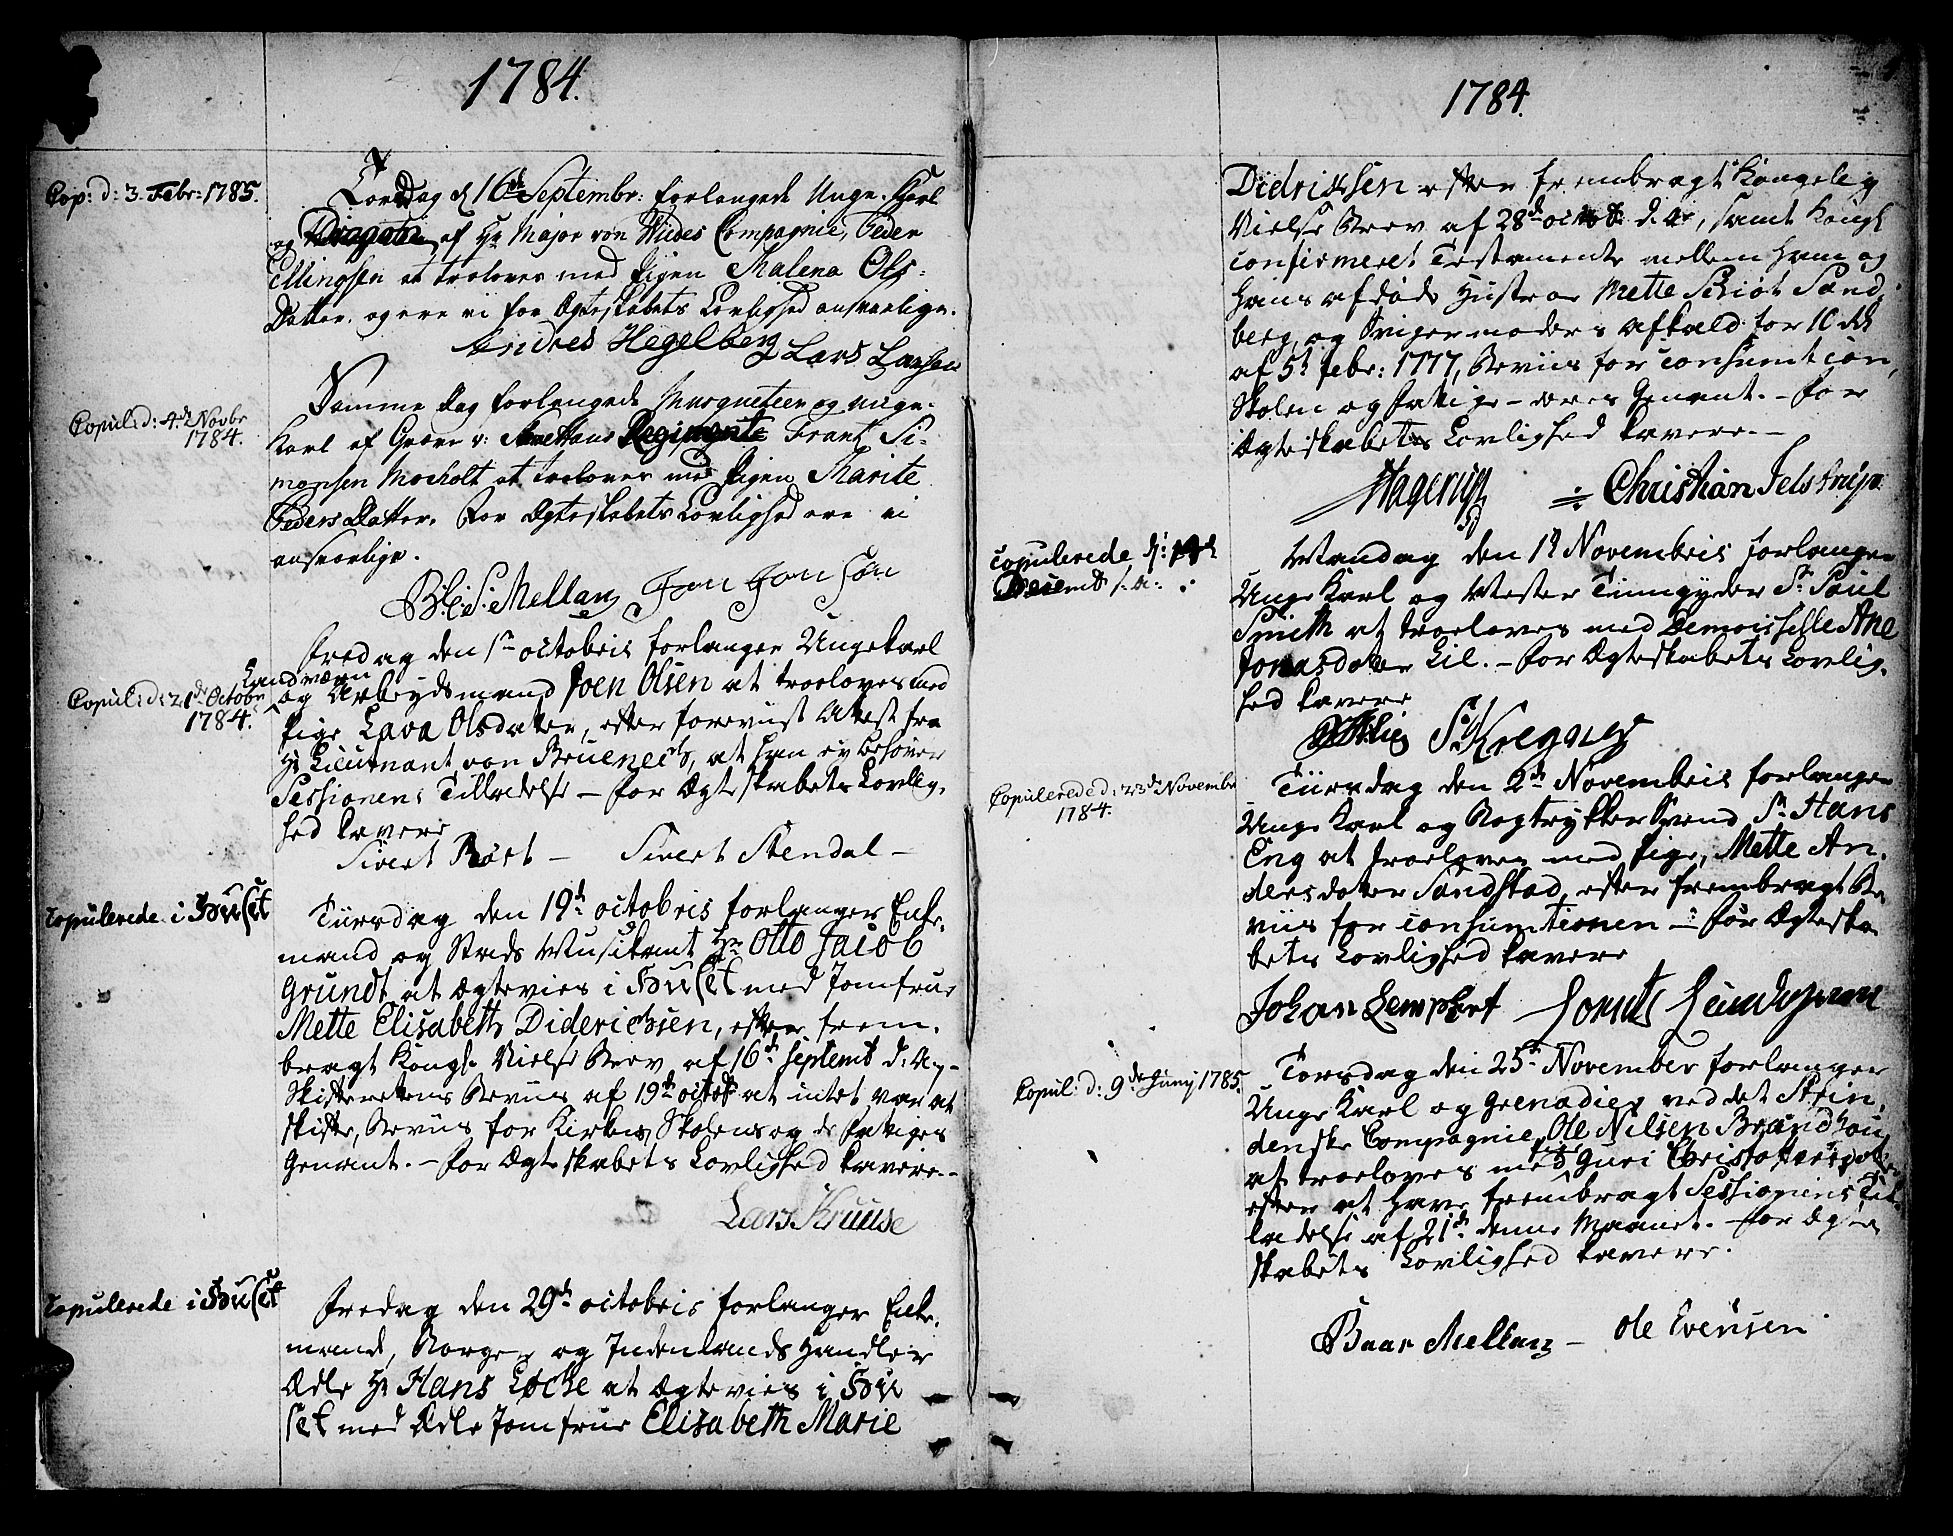 1784.
Cop: d: 3. Febr: 1785.
Torsdag d 16de Septembr: forlangede Unge Karl
og Dragoun af Hr Major von Wudes Compagnie, Peder
Ellingsen at troloves med Pigen Malena Ols-
Datter. og ere vi for Ægteskabets Lovlighed ansvarlige.
Andres Hegelberg Lars Larsen
Copul: d: 4de Novbr
1784.
Samme dag forlangede Musqueteer og unge-
Karl af Grev v: Regimente Frantz Si-
monsen Mocholt at troloves med Pigen Marite
Peders Datter. For Ægteskabets Lovlighed ere vi
ansvarlige.
B: C: S: Mellan Jon Jonsøn
Copul: d: 21de Octobr
1784.
Fredag den 1te octobris forlanger Ungekarl
Landværn
og Arbeydsmand Joen Olsen at troeloves med
Pige Lava Olsdater, efter foreviist Attest fra
Hr Lieutnant von Bruenech, at han ey behøver
Sessionens Tilladelse – for Ægteskabets Lovlig-
hed cavere
Sivert Røst – Sivert Stendal –
Copulerede i Huuset
Tiirsdag den 19de octobris forlanger Enke-
mand og Stads Musikant Hr Otto Jacob
Grundt at Ægtevies i Huuset med Jomfrue
Mette Elisabeth Diderichsen, efter frem-
bragt Kongl: Vielse Brev af 16de Septembr d: A, –
Skifterettens Beviis af 19de octobr at intet var at
skifte, Beviis for Kirkens, Skolens og de Fattiges
Genant. – for Ægteskabets Lovlighed cavere. –
Lars Kruuse
Copulerede i Huuset
Fredag den 29de octobris forlanger Enke-
mand, Borger og Indenlands Handler
Ædle Hr Hans Løche at Ægtevies i Huu
set med Ædle Jomfrue Elisabeth Marie
1784.
Didrichsen efter frembragt Kongelig
Vielse Brev af 28de octobr d: A:, samt Kongl
confirmeret Testamente mellem ham og
hans afdøde Hustroe Mette Schiøt Sand-
berg, og Svigermoders afkald for
af 5te febr: 1777, Beviis for Consumtion,
Skolen og Fattige – deres Genant. – for
Ægteskabets Lovlighed cavere. –
Hagerup Christian Jelstrup
Copulerede d:
Decembr s. a:
Mandag den 1te Novembris forlanger
Unge Karl og Mester Tinngyder Sr Poul
Smith at troeloves med Demoiselle Ane
Jonasdater Lil. – for Ægteskabets Lovlig-
hed cavere
S: Kregnes
Copulerede d: 23de Novembr
1784.
Tiirsdag den 2de Novembris forlanger
Unge Karl og Bogtrykker Svend Sr Hans
Eng at troeloves med Pige, Mette An-
dersdater Sandstad, efter frembragt Be-
viis for Consumtionen – for Ægteska-
bets Lovlighed cavere
Johan Lemphert
Copul: d: 9de Juny 1785.
Torsdag den 25de November forlanger
Unge Karl og Grenadier ved det Strin-
denske Compagnie, Ole Nilsen Brandhou
at troeloves med Pige Guri Christoffersdatter
efter at have frembragt Sessionens Til-
ladelse af 21de denne Maanet. – for Ægte
skabets Lovlighed cavere.
Baar Mellan – Ole Evensen